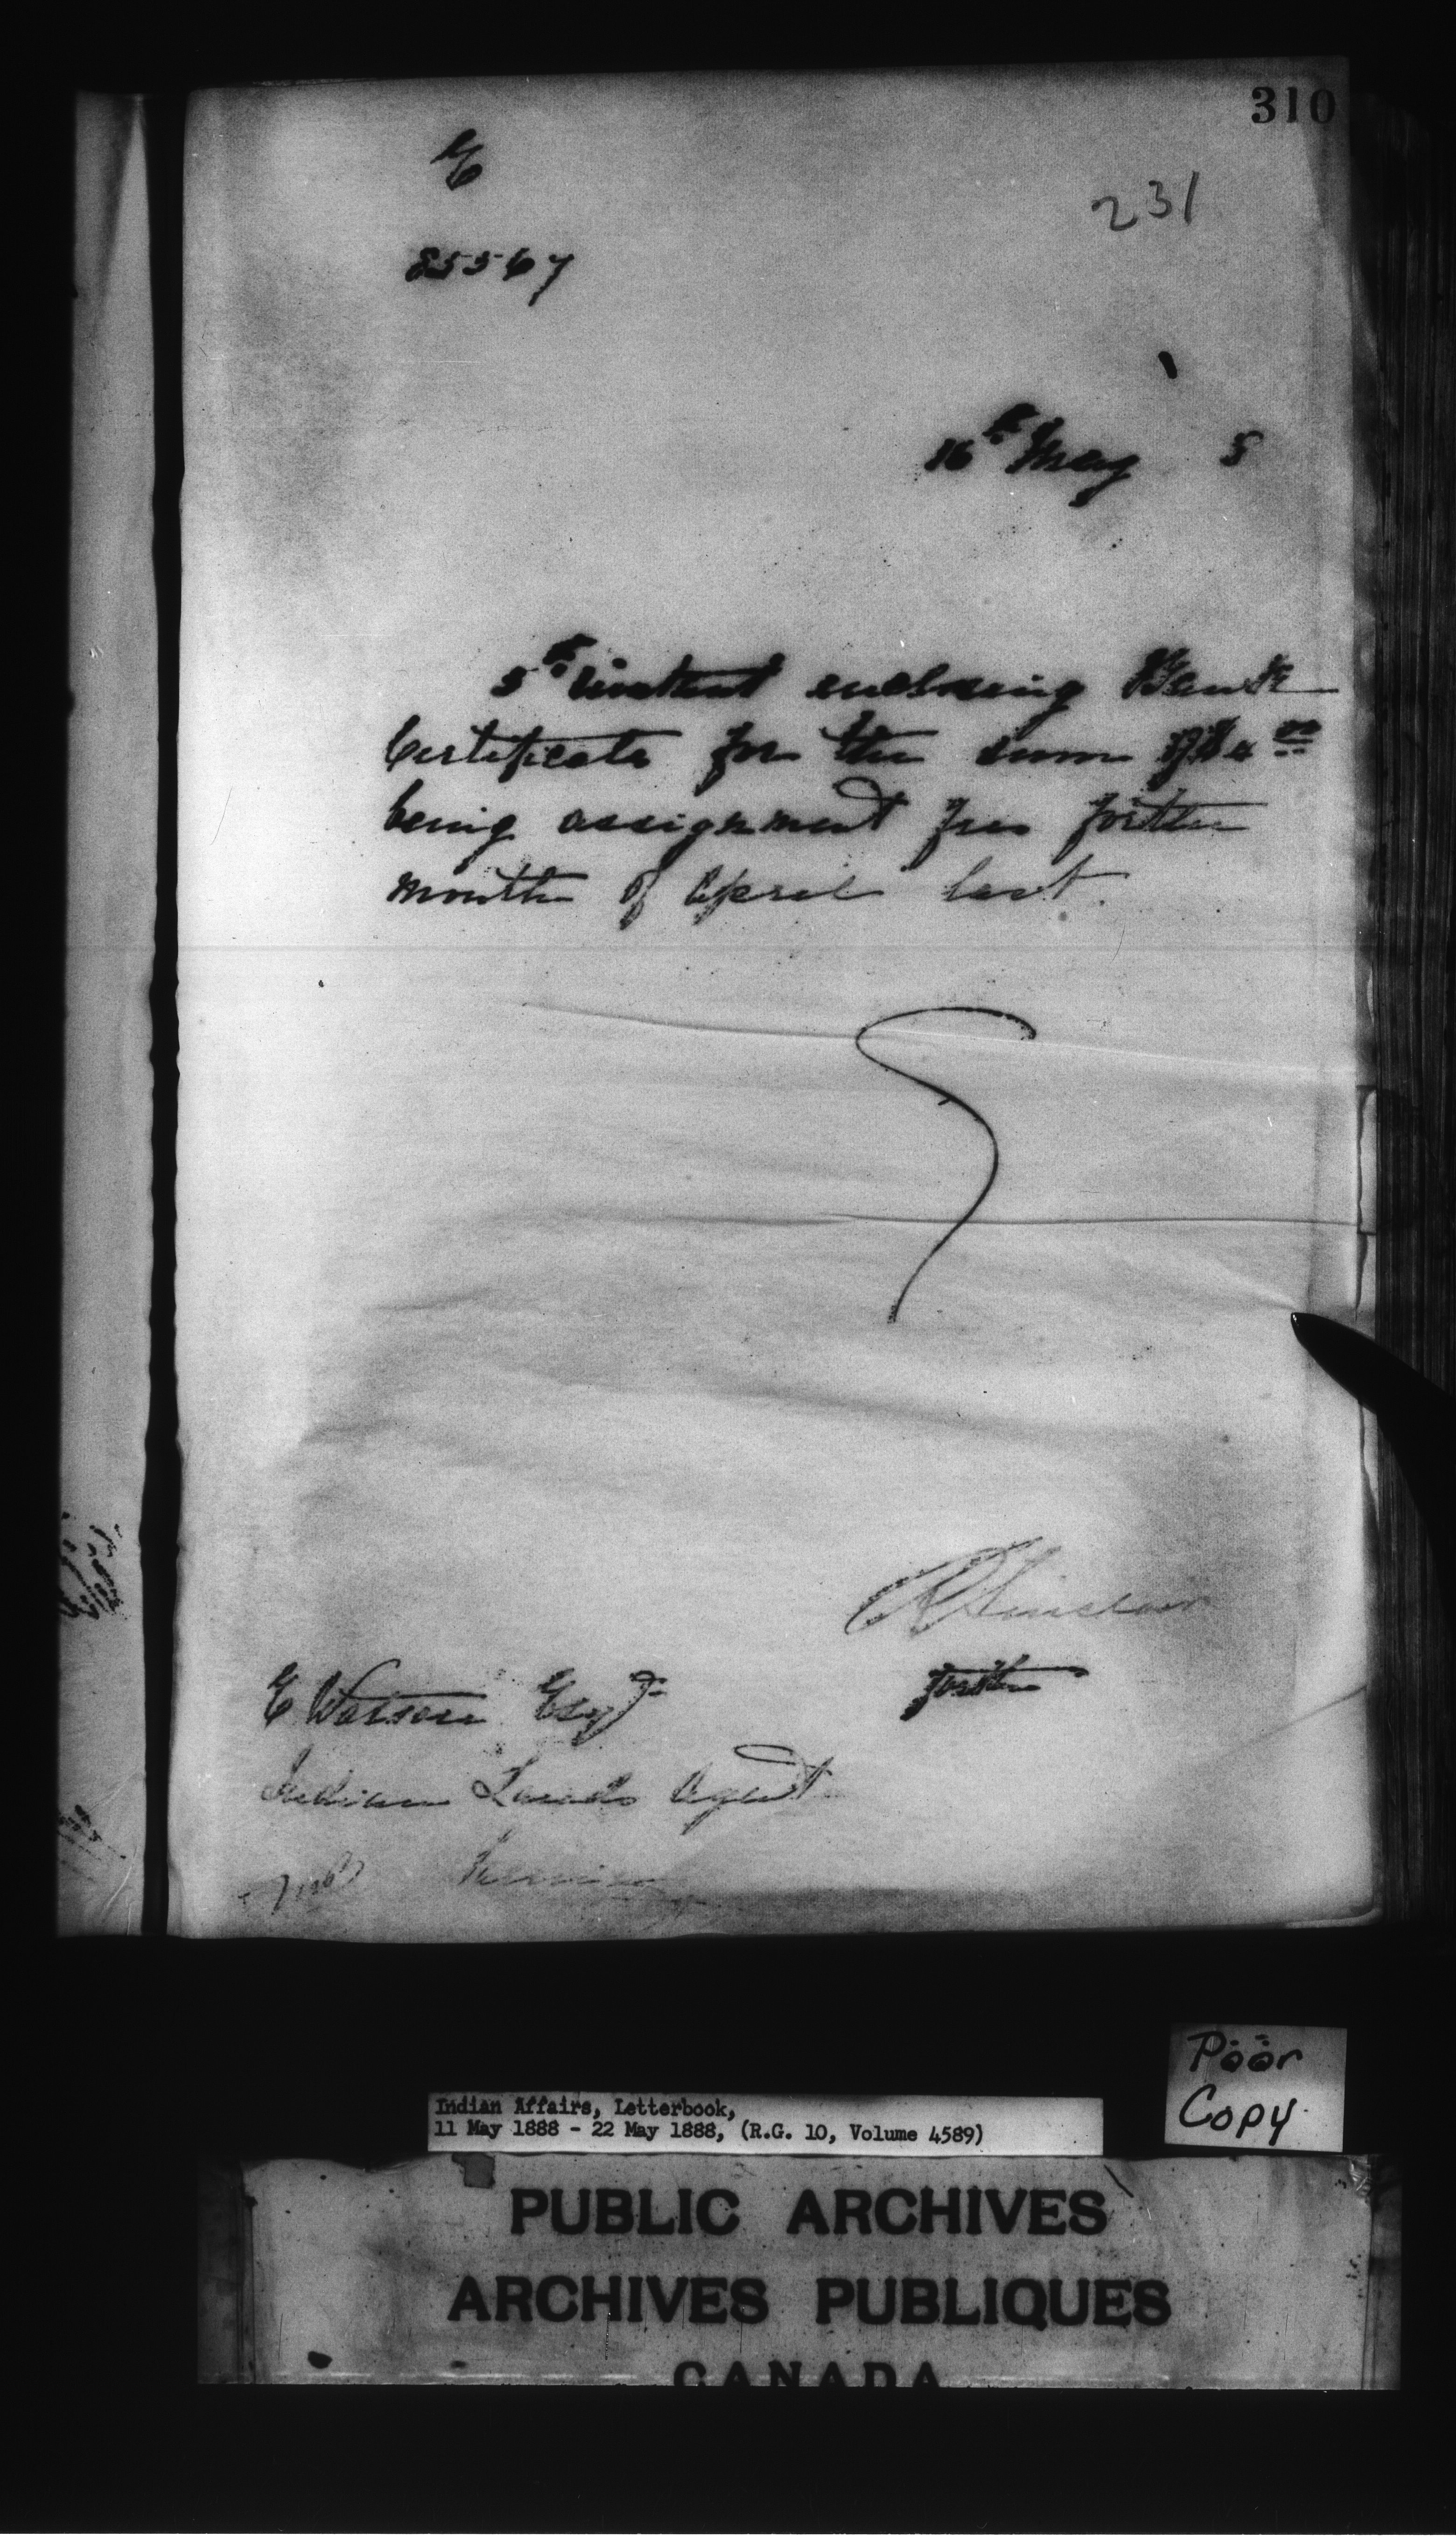 310
231
85567
16th May 8
5th instant enclosing Bank
Certificate for the sum of $4 00
being assignment fees for the
month of April last.
Sinclair
for the
E Watson Esqr
Indian Lands Agent
Poor
Copy
Indian Affairs, Letterbook,
11 May 1888 - 22 May 1888, (R.G. 10, Volume 4589)
PUBLIC ARCHIVES
ARCHIVES PUBLIQUES
CANADA